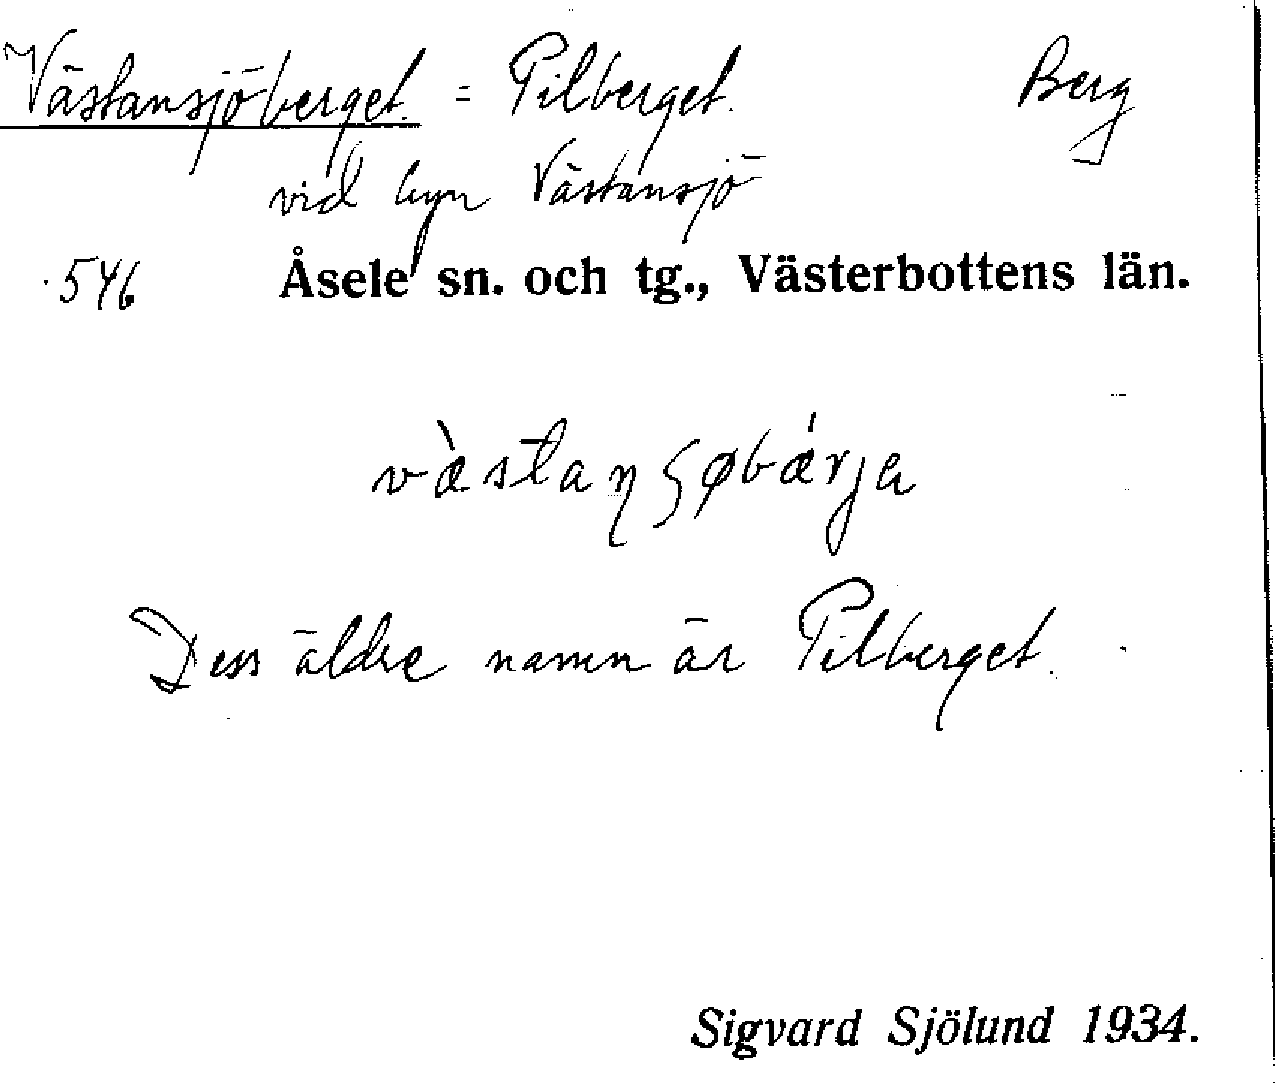 Västansjöberget. = Pilberget. Berg
vid byn Västansjö
546 Åsele sn. och tg., Västerbottens län.
væ̀staŋʂøbǽrjɐ
Dess äldre namn är Pilberget.
Sigvard Sjölund 1934.